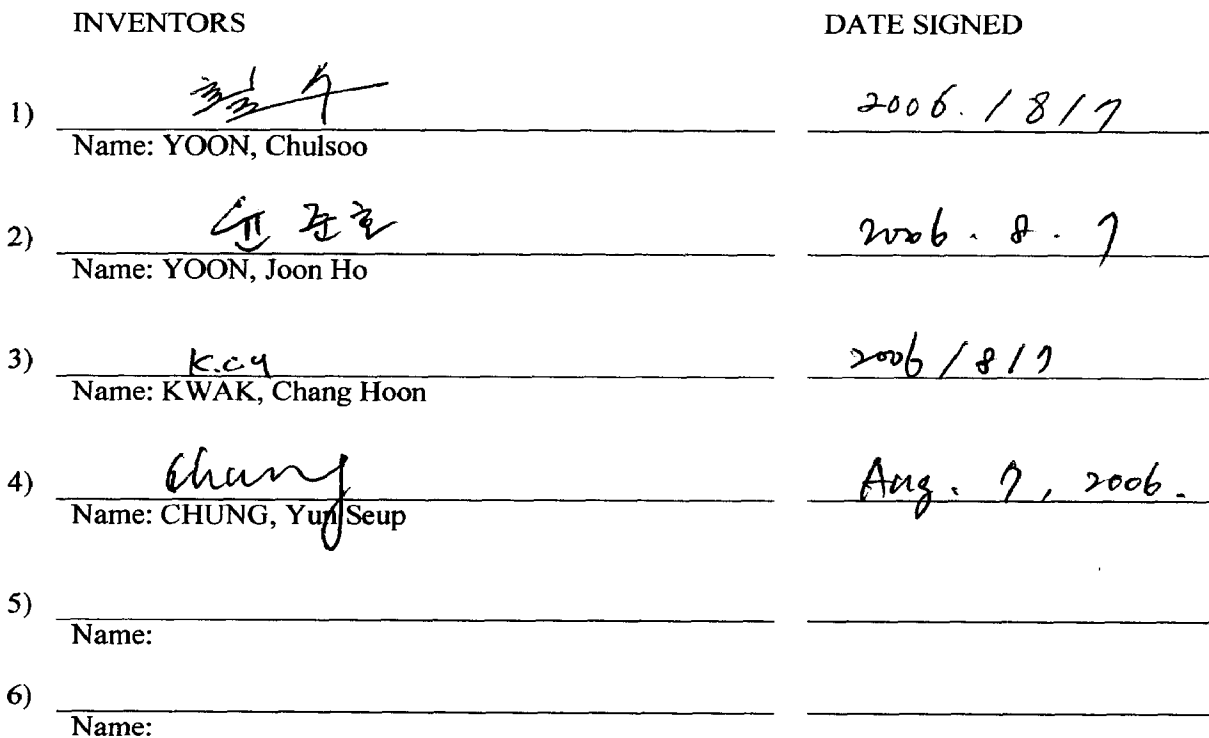 INVENTORS DATE SIGNED
1) 철수 2006. / 8 / 7
Name: YOON, Chulsoo
2) 윤준호 2006. 8. 7
Name: YOON, Joon Ho
3) 2006 / 8 / 7
Name: KWAK, Chang Hoon
4) Chung Aug. 7, 2006.
Name: CHUNG, Yun Seup
5)
Name:
6)
Name: